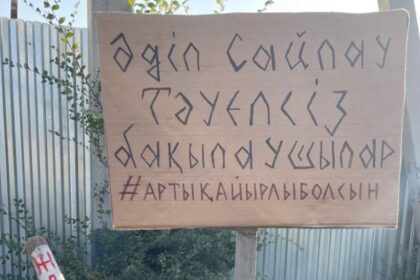 Әділ Сайлау
Тәуелсіз
бақылаушылар
#АРТЫҚАЙЫРЛЫБОЛСЫН